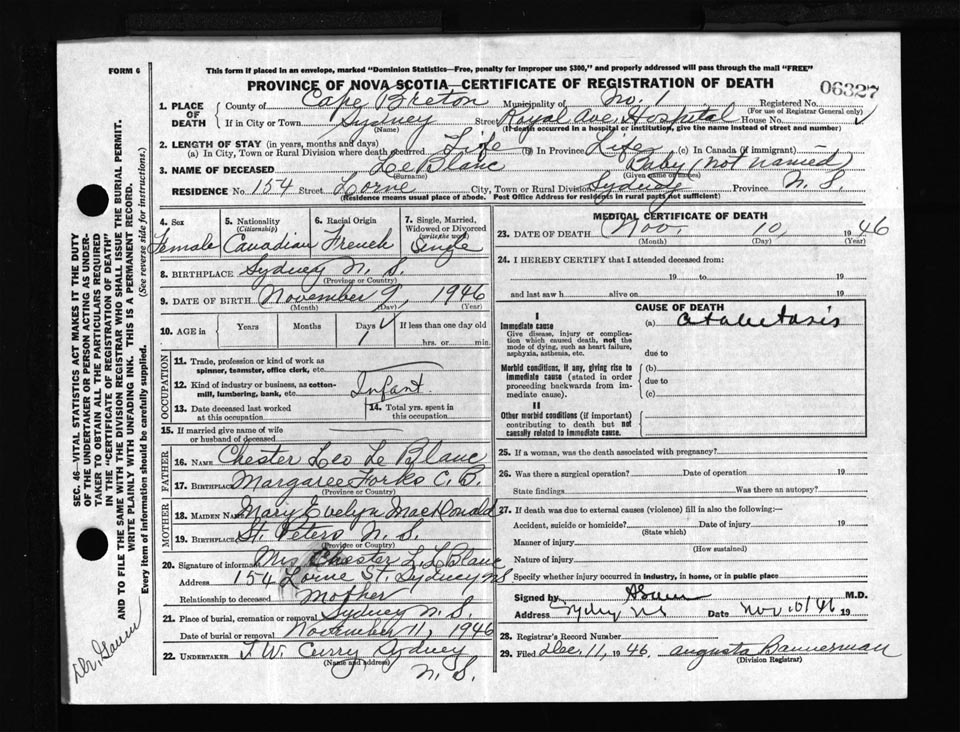 FORM 6
This form if placed in an envelope, marked "Dominion Statistics—Free, penalty for improper use $300," and properly addressed will pass through the mail "FREE"
PROVINCE OF NOVA SCOTIA—CERTIFICATE OF REGISTRATION OF DEATH
06327
1. PLACE OF DEATH County of Cape Breton Municipality of No. 1 Registered No.
(For use of Registrar General only)
If in City or Town Sydney Street Royal Ave. Hospital House No.
(Name) (If death occurred in a hospital or institution, give the name instead of street and number)
2. LENGTH OF STAY (in years, months and days)
(a) In City, Town or Rural Division where death occurred Life (b) In Province Life (c) In Canada (if immigrant)
3. NAME OF DECEASED LeBlanc Baby (not named)
(Surname) (Given name or names)
RESIDENCE No. 154 Street Lorne City, Town or Rural Division Sydney Province N. S.
(Residence means usual place of abode. Post Office Address for residents in rural parts not sufficient)
4. Sex Female
5. Nationality (Citizenship) Canadian
6. Racial Origin French
7. Single, Married, Widowed or Divorced (write the word) Single
8. BIRTHPLACE Sydney N. S.
(Province or Country)
9. DATE OF BIRTH November 9, 1946
(Month) (Day) (Year)
10. AGE in Years Months Days 1 If less than one day old
hrs. or min.
OCCUPATION
11. Trade, profession or kind of work as spinner, teamster, office clerk, etc.
12. Kind of industry or business, as cotton-mill, lumbering, bank, etc. Infant
13. Date deceased last worked at this occupation
14. Total yrs. spent in this occupation
15. If married give name of wife or husband of deceased
FATHER
16. NAME Chester Leo Le Blanc
17. BIRTHPLACE Margaree Forks C. B.
(Province or Country)
MOTHER
18. MAIDEN NAME Mary Evelyn MacDonald
19. BIRTHPLACE St. Peters N. S.
(Province or Country)
20. Signature of informant Mrs Chester L. LeBlanc
Address 154 Lorne St. Sydney N S
Relationship to deceased Mother
21. Place of burial, cremation or removal Sydney N. S.
Date of burial or removal November 11, 1946
22. UNDERTAKER T. W. Curry Sydney
(Name and address) N. S.
MEDICAL CERTIFICATE OF DEATH
23. DATE OF DEATH Nov. 10, 1946
(Month) (Day) (Year)
24. I HEREBY CERTIFY that I attended deceased from:
19 to 19
and last saw h alive on 19
CAUSE OF DEATH
I
Immediate cause (a)
Give disease, injury or complication which caused death, not the mode of dying, such as heart failure, asphyxia, asthenia, etc.
due to
Morbid conditions, if any, giving rise to immediate cause (stated in order proceeding backwards from immediate).
(b)
due to
(c)
II
Other morbid conditions (if important) contributing to death but not causally related to immediate cause.
25. If a woman, was the death associated with pregnancy?
26. Was there a surgical operation? Date of operation 19
State findings Was there an autopsy?
27. If death was due to external causes (violence) fill in also the following:—
Accident, suicide or homicide? Date of injury 19
(State which)
Manner of injury
(How sustained)
Nature of injury
Specify whether injury occurred in industry, in home, or in public place
Signed by M.D.
Address Sydney NS Date Nov 10/46 19
28. Registrar's Record Number
29. Filed Dec. 11, 1946. Augusta Bannerman
(Division Registrar)
SEC. 46—VITAL STATISTICS ACT MAKES IT THE DUTY
OF THE UNDERTAKER OR PERSON ACTING AS UNDER-
TAKER TO OBTAIN ALL THE PARTICULARS REQUIRED
IN THE "CERTIFICATE OF REGISTRATION OF DEATH"
AND TO FILE THE SAME WITH THE DIVISION REGISTRAR WHO SHALL ISSUE THE BURIAL PERMIT.
WRITE PLAINLY WITH UNFADING INK. THIS IS A PERMANENT RECORD.
Every item of information should be carefully supplied. (See reverse side for instructions.)